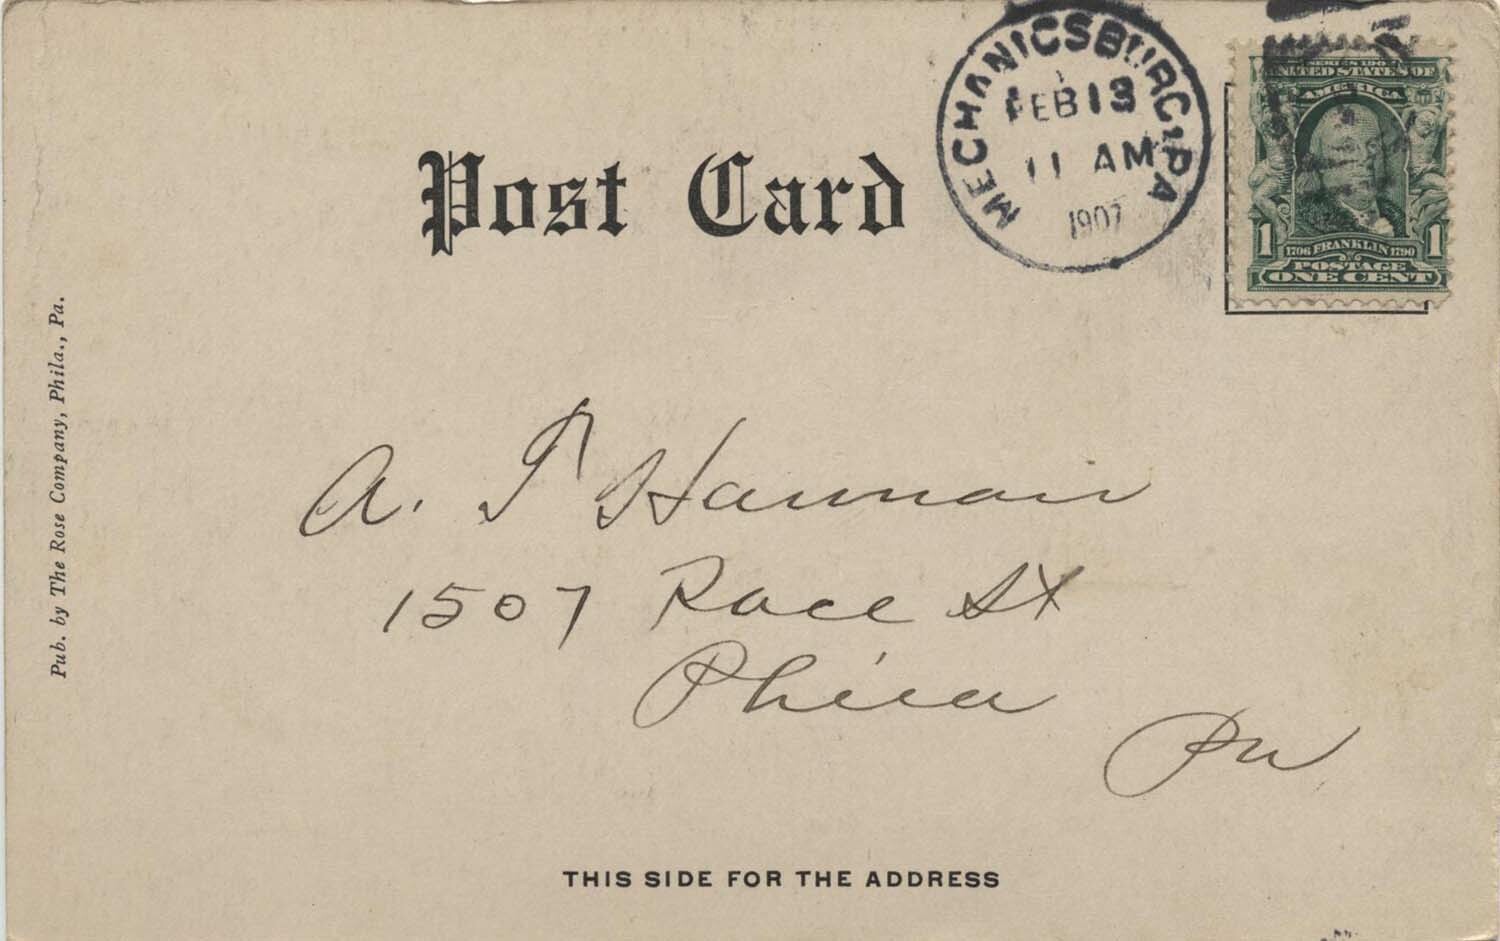 Post Card
MECHANICSBURG, PA
FEB 13
11 AM
1907
SERIES 1902
UNITED STATES OF
AMERICA
1 1706 FRANKLIN 1790 1
POSTAGE
ONE CENT
Pub. by The Rose Company, Phila., Pa.
A.
1507 Race St
Phila
Pa
THIS SIDE FOR THE ADDRESS